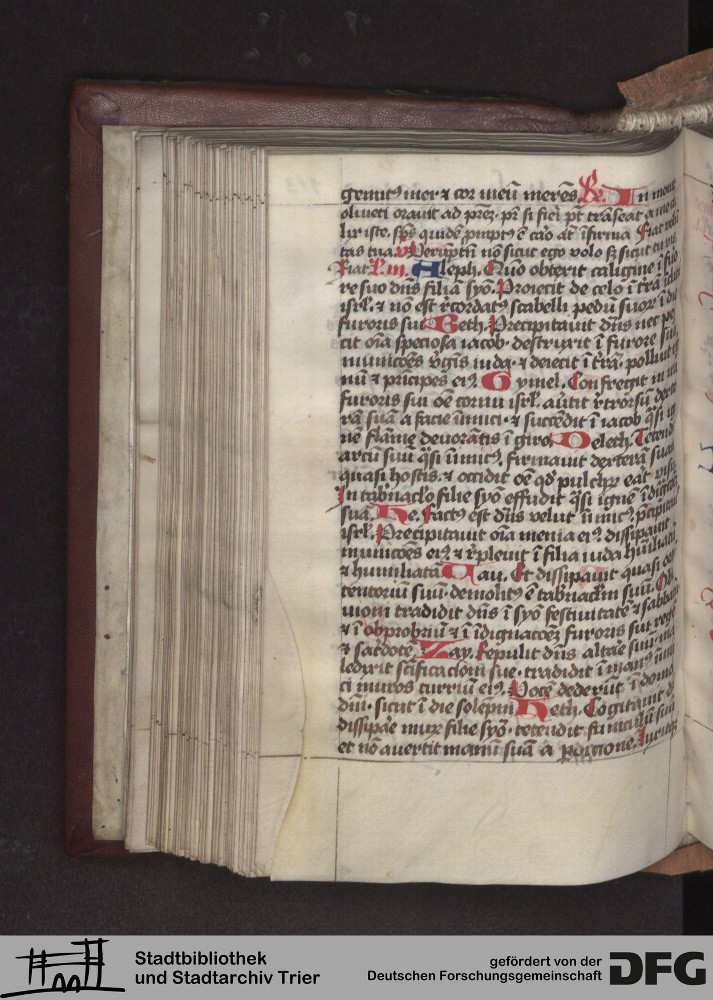 gemit9 mei ⁊ cor meū merēs R. In monte
oliveti oravit ad prēz pr̄ si fieri pt̄ trāseat a me ca
lix iste. sp̄s quidē prūpt9 ē caro āt īfirma fiat volū
tas tua. v. Verūptn̄ nō sicut ego volo sȝ sicut tu vis
Fiat L. iii. Aleph. Quō obtexit caligine ī furo
re suo dn̄s filiā syō. Proiecit de celo ī tr̄ā īclitā
isrl. ⁊ nō est r̄cordat9 scabelli pedū suorꝫ ī die
furoris sui Beth. Precipitavit dn̄s nec pep
cit oīa speciosa iacob. destruxit ī furore suo
municōes v̄gīs iuda. ⁊ deiecit ī tr̄ā. polluit reg
nū ⁊ prīcipes ei9 Gymel. Confregit in ira
furoris sui oē cornu isrl. av̄tit r̄trorsū dexte
rā suā a facie inimici. ⁊ succēdit ī iacob q̄si ig
nē flāme devorātis ī giro. Deleth. Tetendit
arcū suū q̄si inimic9. firmavit dexterā suā
quasi hostis. ⁊ occidit oē qd̄ pulchrꝫ erat visu
In tab̄naclo filie syō effudit q̄si ignē īdignacōem
suā. He. Fact9 est dn̄s velut inimic9. p̄cipitavit
isrl. Precipitavit oīa menia ei9. dissipavit
municōes ei9 ⁊ r̄plevit ī filia iuda hūiliatū
⁊ humiliatā Vau. Et dissipavit quasi ortū
tentoriū suū. demolit9 ē tabnaclm suū. Obli
vioni tradidit dn̄s ī syō festivitatē ⁊ sabbatū
⁊ ī obprobriū ⁊ ī īdignacōez furoris sui regē
⁊ sac̄dotē. Zay. Repulit dn̄s altare suū. ma
ledixit sc̄ificacioni sue. tradidit ī man9 inimi
ci muros turriū ei9. Vocē dederūt ī domo
dn̄i. sicut ī die solepni Heth. Cogitavit dn̄s
dissipare murꝫ filie syō. tetendit funiculū suū
et nō avertit manū suā a perdicione. luxitqꝫ
Stadtbibliothek
und Stadtarchiv Trier
gefördert von der
Deutschen Forschungsgemeinschaft DFG